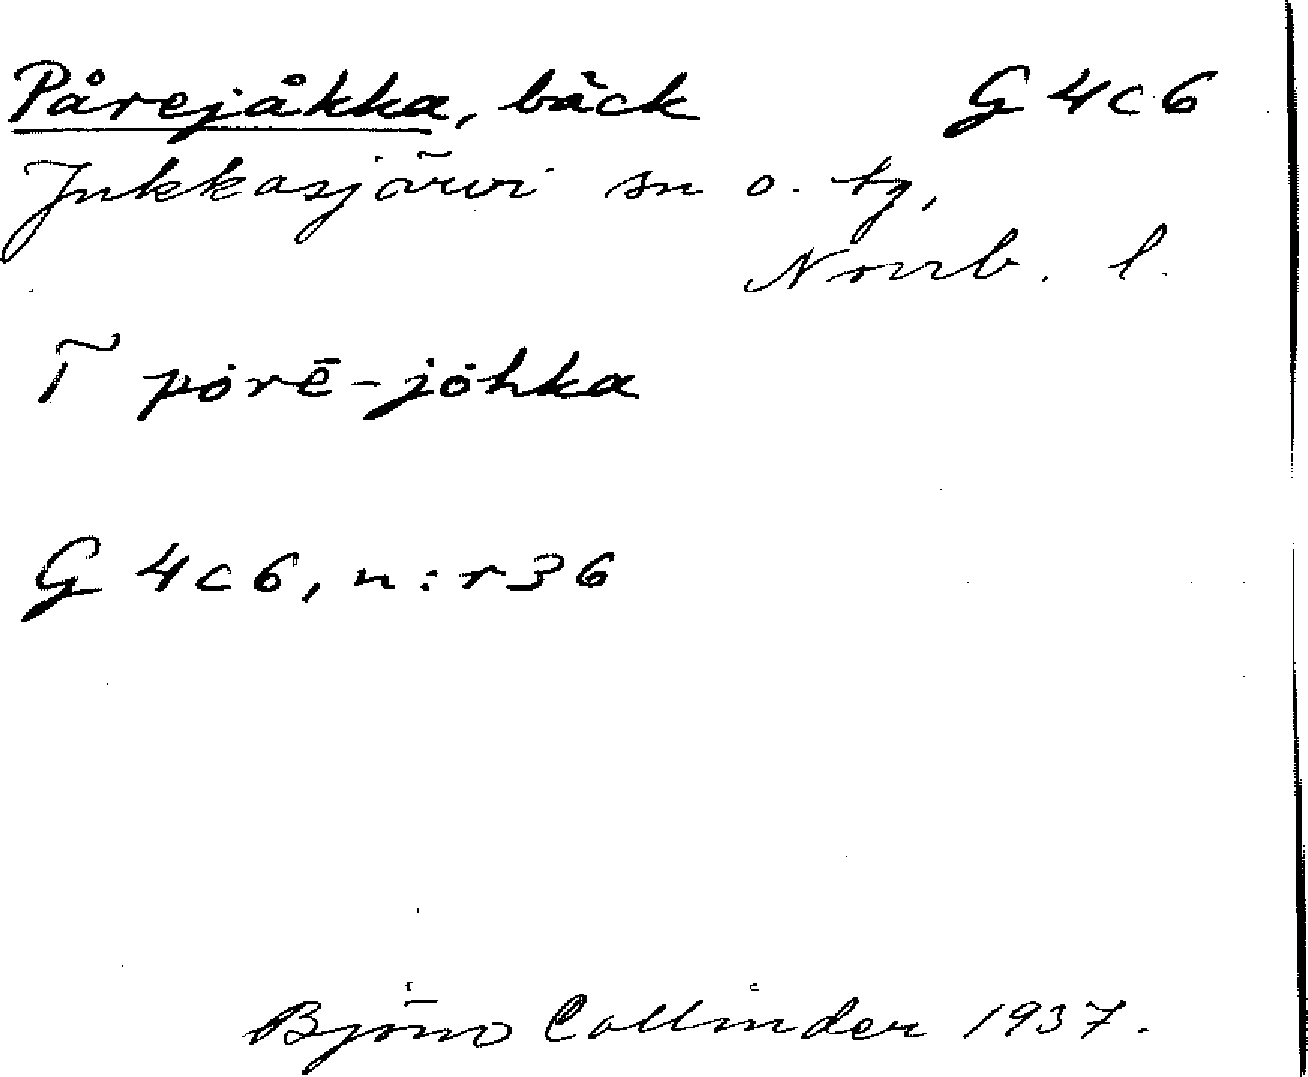 Pårejåkka, bäck G 4 c 6
Jukkasjärvi sn o. tg,
Norrb. l.
T pȯrē-jȯhka
G 4 c 6, n:r 36
Björn Collinder 1937.